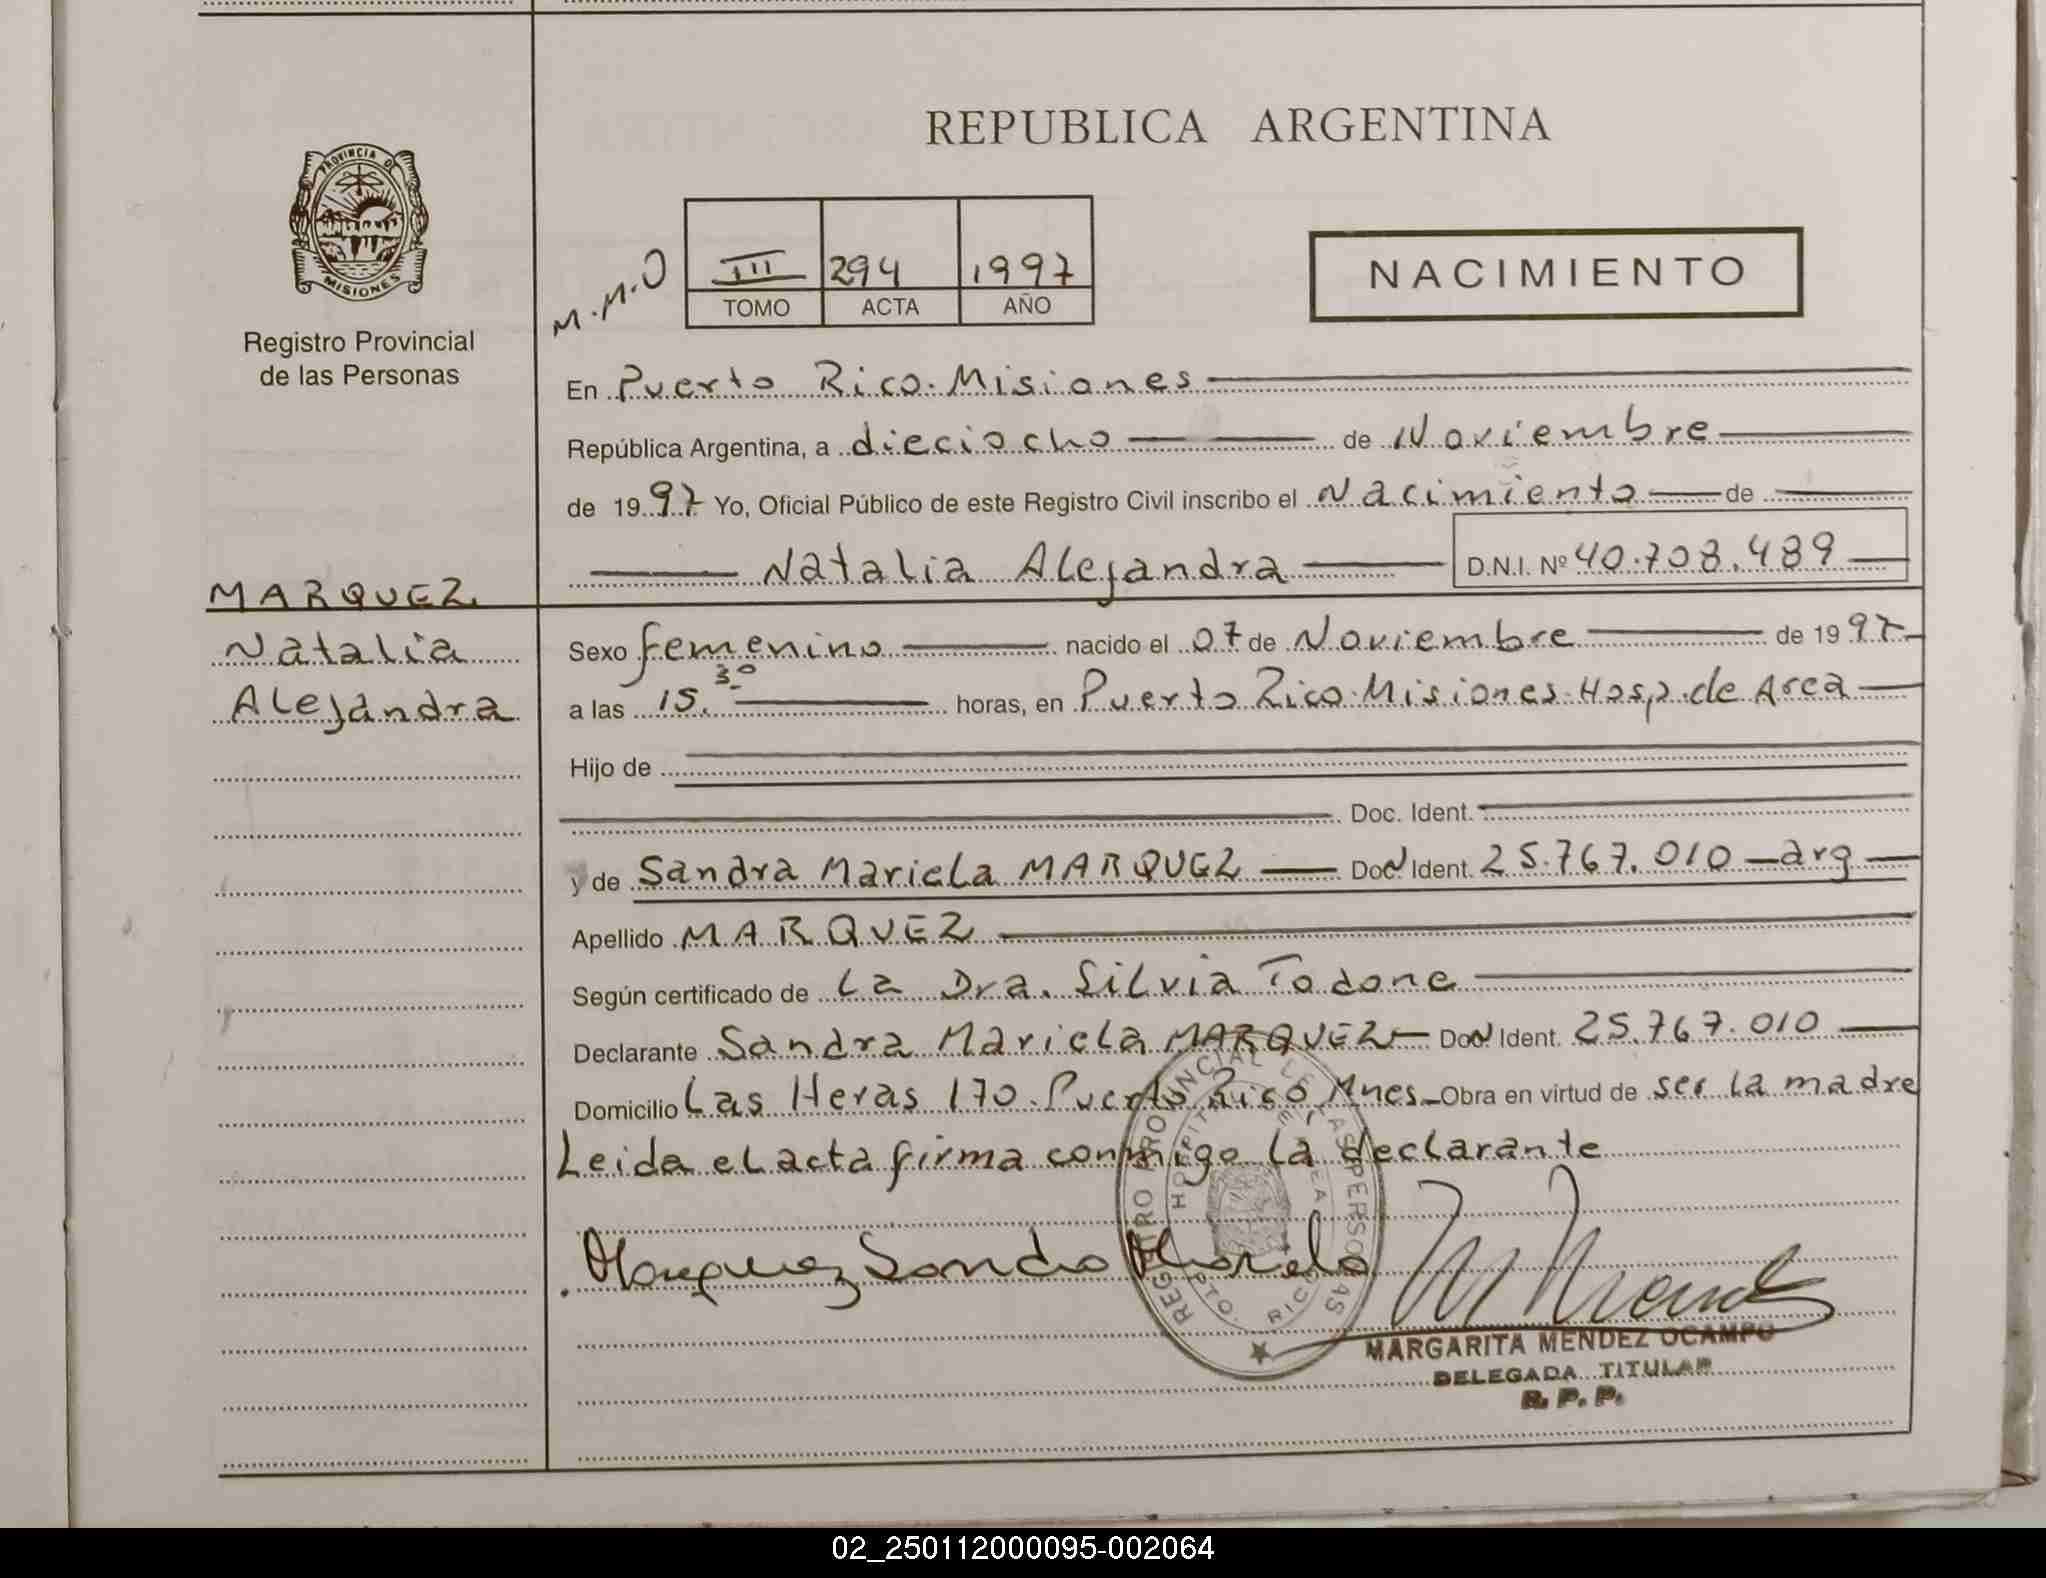 REPUBLICA ARGENTINA
PROVINCIA DE
MISIONES
Registro Provincial
de las Personas
M.M.O
III 294 1997
TOMO ACTA AÑO
NACIMIENTO
En Puerto Rico. Misiones
República Argentina, a dieciocho de Noviembre
de 1997 Yo, Oficial Público de este Registro Civil inscribo el Nacimiento de
Natalia Alejandra D.N.I. Nº 40.708.489
MARQUEZ
Natalia
Alejandra
Sexo femenino nacido el 07 de Noviembre de 1997
a las 15.30 horas, en Puerto Rico. Misiones. Hosp. de Area
Hijo de
Doc. Ident.
y de Sandra Mariela MARQUEZ Doc. Ident. 25.767.010 arg
Apellido MARQUEZ
Según certificado de La Dra. Silvia Todone
Declarante Sandra Mariela MARQUEZ Doc. Ident. 25.767.010
Domicilio Las Heras 170. Puerto Rico, Mnes Obra en virtud de ser la madre
Leida el acta firma conmigo la declarante
Marquez Sandra Mariela
REGISTRO PROVINCIAL DE LAS PERSONAS
MARGARITA MENDEZ OCAMPO
DELEGADA TITULAR
R. P. P.
02_250112000095-002064